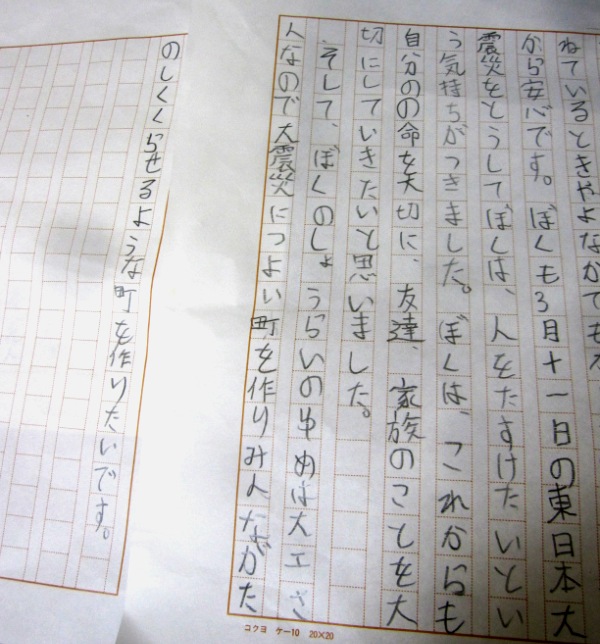 ねているときやよなかでも
から安心です。ぼくも3月十一日の東日本大
震災をとうしてぼくは、人をたすけたいとい
う気持ちがつきました。ぼくは、これからも
自分のの命を大切に、友達、家族のことを大
切にしていきたいと思いました。
そして、ぼくのしょうらいのゆめは大工さ
んなので大震災につよい町を作りみんながた
のしくくらせるような町を作りたいです。
コクヨ ケー10 20×20